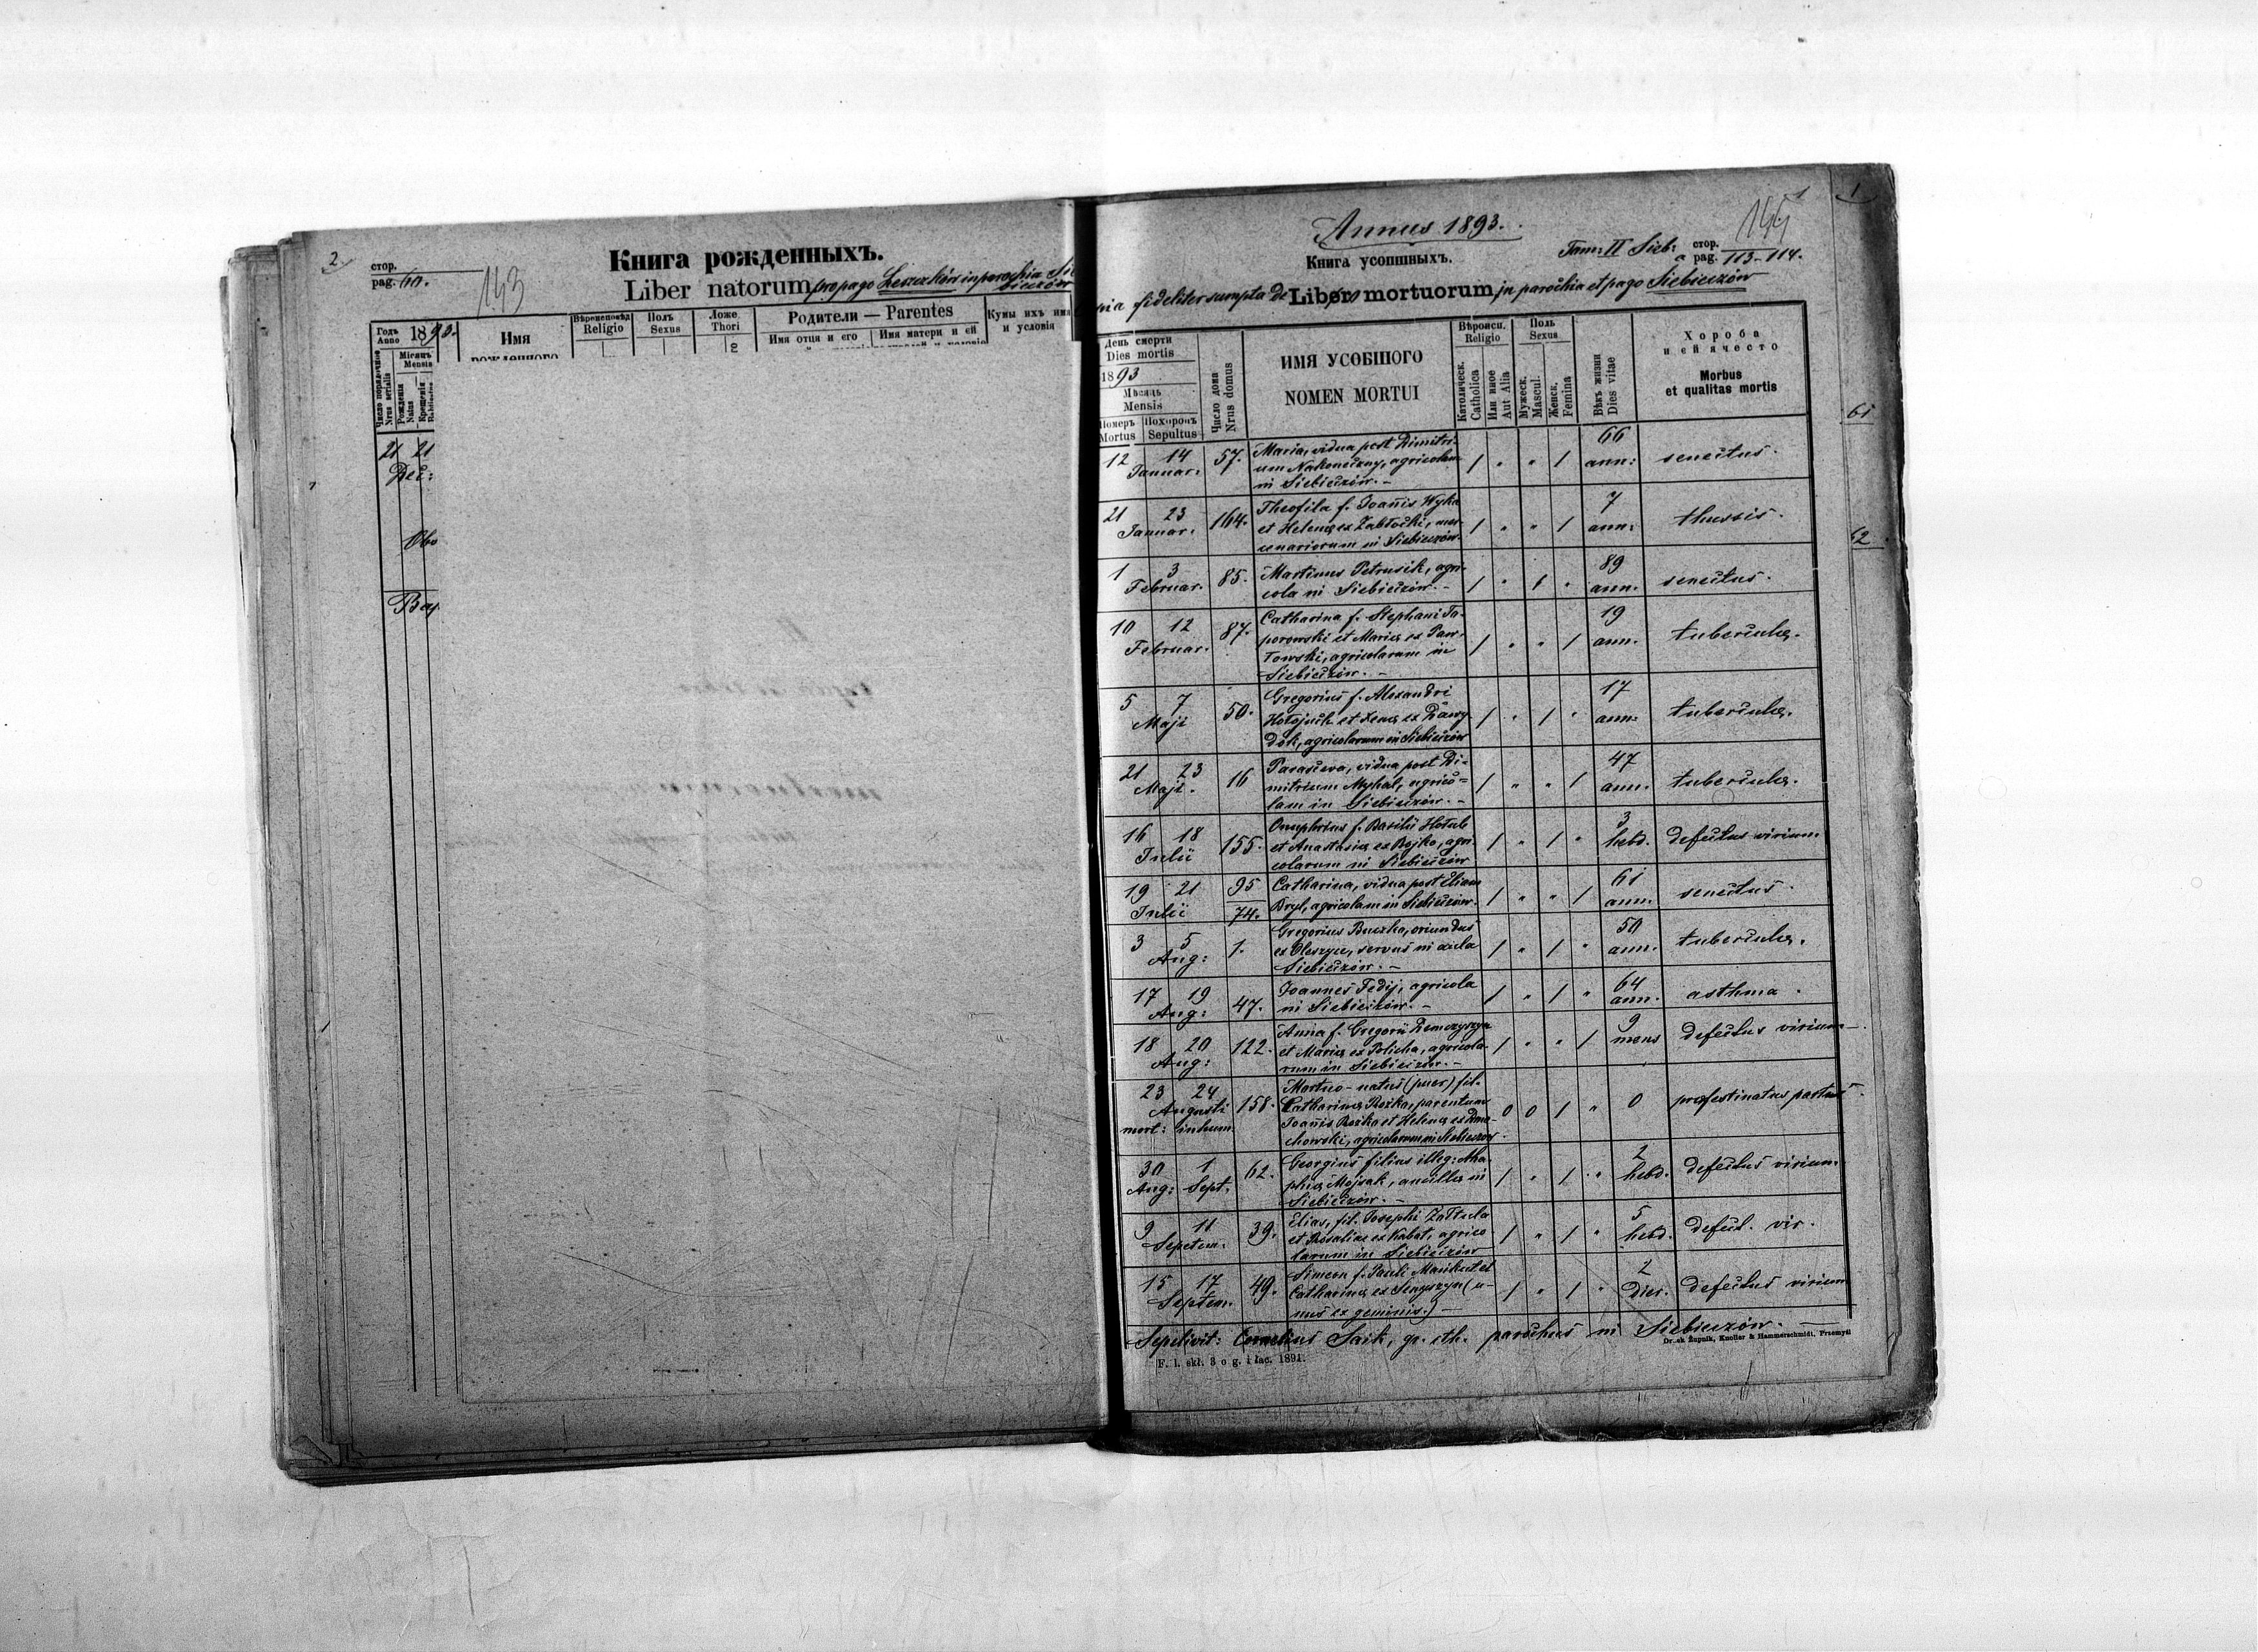 2
стор.
pag. 60.
143
Книга рожденныхъ.
Liber natorum pro pago Leszczków in parochia
Годъ
Anno 1893.
Имя
Вѣроисповѣд
Religio
Полъ
Sexus
Ложе
Thori
Родители — Parentes
Имя отца и его
Имя матери и ей
Кумы ихъ имя
и условія
Число порядочное
Nrus serialis
Місяць
Mensis
Рожденія
Natus
Крещенія
21 21
Dec:
Annus 1893.
1
Книга усопшныхъ.
Tom: II Sieb: a
стор.
pag. 113-114.
fideliter sumpta de Liber mortuorum, in parochia et pago Siebieczów
День смерти
Dies mortis
1893
Мѣсяць
Mensis
Померъ
Mortus
Похоронъ
Sepultus
Число дома
Nrus domus
ИМЯ УСОБШОГО
NOMEN MORTUI
Вѣроисп.
Religio
Католическ.
Catholica
Или иное
Aut Alia
Полъ
Sexus
Мужеск.
Mascul.
Женск.
Femina
Вѣкъ жизни
Dies vitae
Хороба
и ей ячесто
Morbus
et qualitas mortis
61
62
12 14 Januar. 57. Maria, vidua post Dimitri-
um Nakoneczny, agricolam
in Siebieczów. – 1 " " 1 66 ann: senectus.
21 23 Januar. 164. Theofila f. Joannis Wyka
et Helenae ex Zabłocki, mer-
cenariorum in Siebieczów. 1 " " 1 7 ann: thussis.
1 3 Februar. 85. Martinus Petrusik, agri-
cola in Siebieczów. – 1 " 1 " 89 ann. senectus.
10 12 Februar. 87. Catharina f. Stephani To-
porowski et Mariae ex Paw-
łowski, agricolarum in
Siebieczów. – 1 " " 1 19 ann. tuberculae.
5 7 Maji 50. Gregorius f. Alexandri
et Xenae ex Dawy-
dok, agricolarum in Siebieczów 1 " 1 " 17 ann: tuberculae.
21 23 Maji. 16 Parasceva, vidua post Di-
mitrium Myhal, agrico-
lam in Siebieczów. – 1 " " 1 47 ann. tuberculae.
16 18 Julii 155. Onuphrius f. Basilii Hołub
et Anastasiae ex Bojko, agri
colarum in Siebieczów 1 " 1 " 3 hebd. defectus virium
19 21 Julii 95/74. Catharina, vidua post Eliam
Bryl, agricolam in Siebieczów. 1 " " 1 61 ann. senectus.
3 5 Aug: 1. Gregorius Buczko, oriundus
ex Oleszyce, servus in aula
Siebieczów. – 1 " 1 " 50 ann. tuberculae.
17 19 Aug: 47. Joannes Fedij, agricola
in Siebieczów. – 1 " 1 " 64 ann. asthma.
18 20 Aug: 122. Anna f. Gregorii Demczyszyn
et Mariae ex Policha, agricola-
rum in Siebieczów. – 1 " " 1 9 mens defectus virium –
23 24 Augusti
mort: inhum. 158. Mortuo-natus (puer), fil.
Catharinae Rożka, parentum
Joannis Rożka et Helenae ex
chowski, agricolarum in Siebieczów 0 0 1 " 0 praefestinatus partus.
30 Aug: 1 Sept. 62. Georgius filius illeg: Aha-
phiae Mojsak, ancillae in
Siebieczów. – 1 " 1 " 2 hebd. defectus virium
9 11 Septem. 39. Elias, fil. Josephi Zattula
et Rosaliae ex Kabat, agrico
larum in Siebieczów 1 " 1 " 5 hebd. defect. vir.
15 17 Septem. 49. Simeon f. Pauli Mańkut et
Catharinae ex Senyszyn (u-
nus ex geminis.) – 1 " 1 " 2 dies. defectus virium
Sepelivit: Cornelius Saik, gr. cth. parochus in Siebieczów. –
F. l. skł. 3 o g. i łac. 1891.
Druk Żupnik, Knoller & Hammerschmidt, Przemyśl